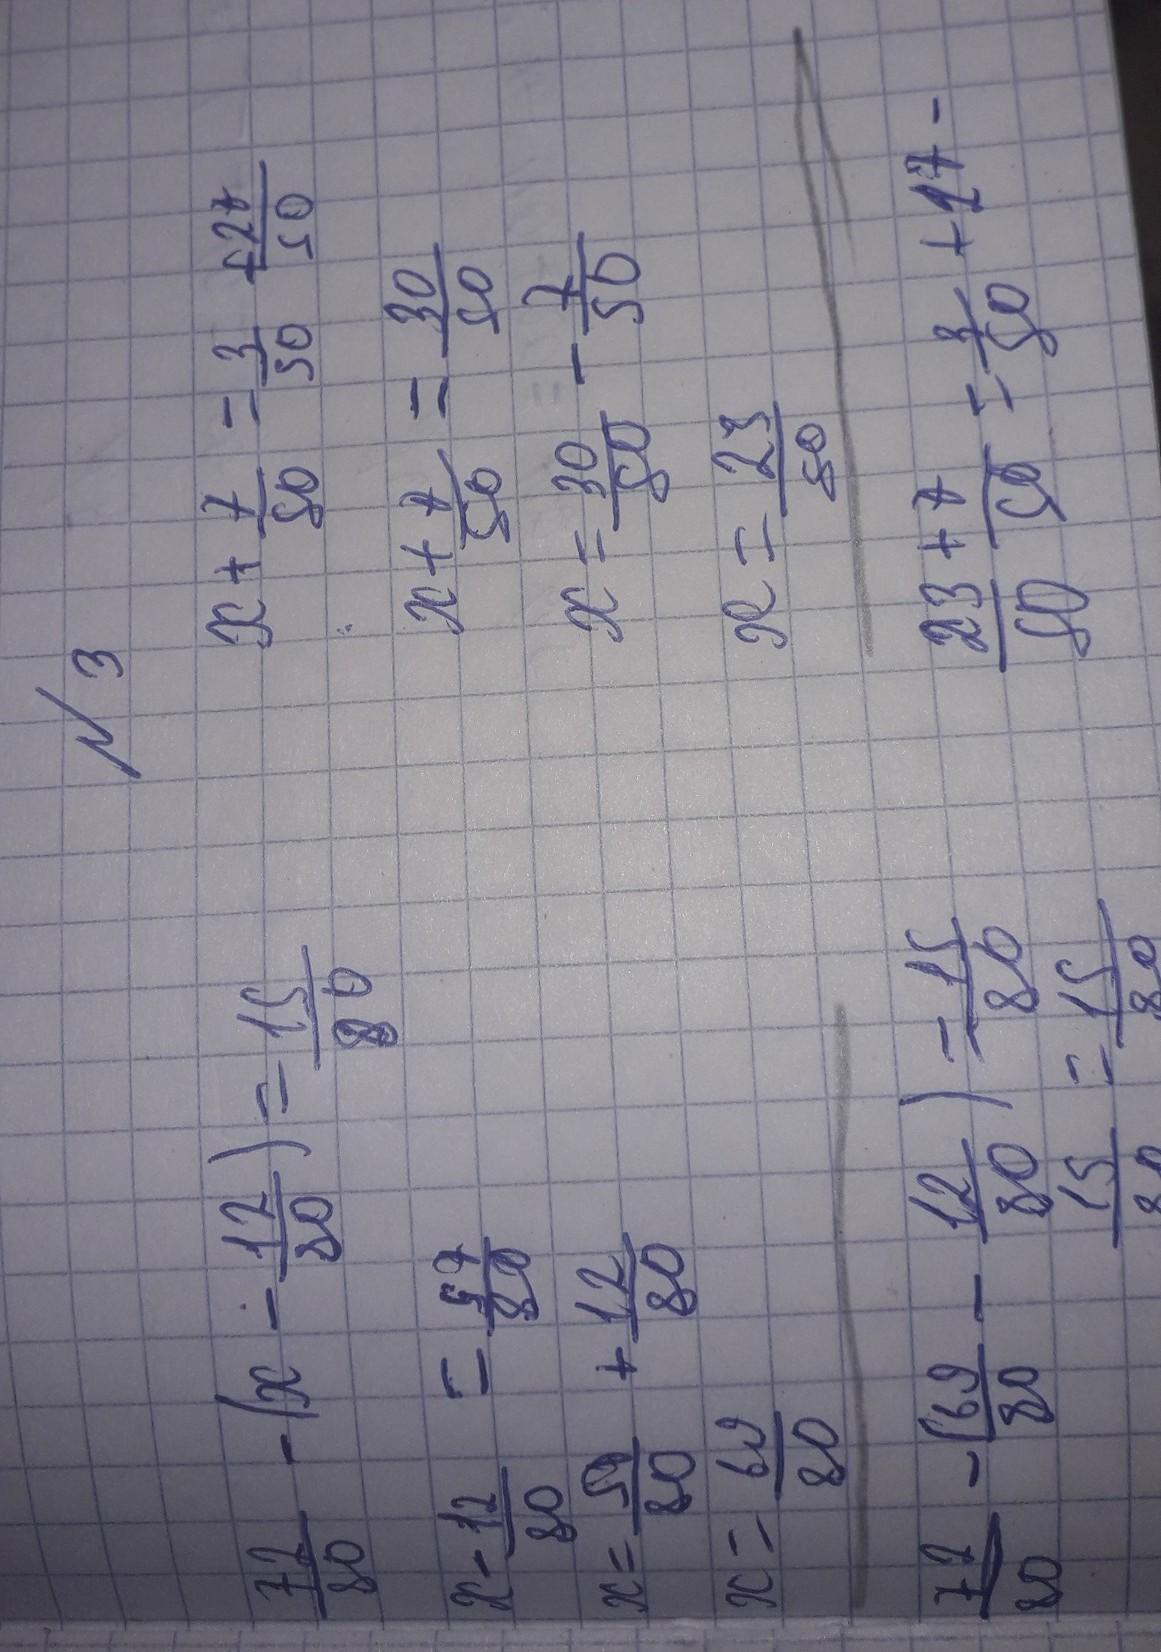 № 3
72/80 - (x - 12/80) = 15/80
x - 12/80 = 57/80
x = 57/80 + 12/80
x = 69/80
72/80 - (69/80 - 12/80) = 15/80
15/80 = 15/80
x + 7/50 = 3/50 + 27/50
x + 7/50 = 30/50
x = 30/50 - 7/50
x = 23/50
23/50 + 7/50 = 3/50 + 27 -